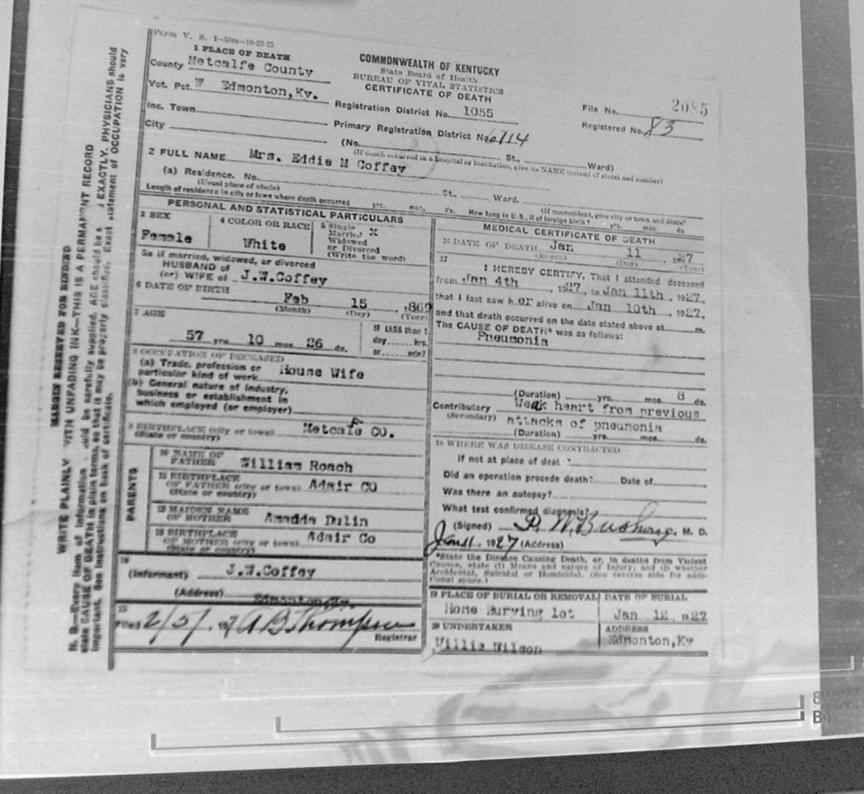 Form V. S. 1-50m-10-23-25
1 PLACE OF DEATH
County Metcalfe County
Vot. Pct. W Edmonton,Ky.
Inc. Town
City
COMMONWEALTH OF KENTUCKY
State Board of Health
BUREAU OF VITAL STATISTICS
CERTIFICATE OF DEATH
Registration District No. 1055
Primary Registration District No. 6714
(No. St., Ward)
(If death occurred in a hospital or institution, give its NAME instead of street and number)
File No. 2085
Registered No. 83
2 FULL NAME Mrs. Eddie M Coffey
(a) Residence. No. St., Ward.
(Usual place of abode) (If nonresident, give city or town, and State)
Length of residence in city or town where death occurred yrs. mos. ds. How long in U. S., if of foreign birth? yrs. mos. ds
PERSONAL AND STATISTICAL PARTICULARS
3 SEX
Female
4 COLOR OR RACE
White
5 Single
Married X
Widowed
or Divorced
(Write the word)
5a If married, widowed, or divorced
HUSBAND of
(or) WIFE of J.W.Coffey
6 DATE OF BIRTH
Feb 15 ,1869
(Month) (Day) (Year)
7 AGE
57 yrs. 10 mos. 26 ds.
If LESS than 1
day hrs.
or min?
8 OCCUPATION OF DECEASED
(a) Trade, profession or
particular kind of work House Wife
(b) General nature of industry,
business or establishment in
which employed (or employer)
9 BIRTHPLACE (city or town) Metcalfe CO.
(State or country)
PARENTS
10 NAME OF
FATHER William Roach
11 BIRTHPLACE
OF FATHER (city or town) Adair CO
(State or country)
12 MAIDEN NAME
OF MOTHER Amadda Dulin
13 BIRTHPLACE
OF MOTHER (city or town) Adair Co
(State or country)
14
(Informant) J.W.Coffey
(Address) Edmonton,Ky.
15
Filed 2/5/ 1927 A B Thompson
Registrar
MEDICAL CERTIFICATE OF DEATH
16 DATE OF DEATH Jan 11 , 1927
(Month) (Day) (Year)
17
I HEREBY CERTIFY, That I attended deceased
from Jan 4th , 1927, to Jan 11th, 1927,
that I last saw h er alive on Jan 10th , 1927,
and that death occurred on the date stated above at m.
The CAUSE OF DEATH* was as follows:
Pneumonia
(Duration) yrs. mos. 8 ds.
Contributory Weak heart from previous
(Secondary) attacks of pneunonia
(Duration) yrs. mos. ds.
18 WHERE WAS DISEASE CONTRACTED
If not at place of deat
Did an operation precede death? Date of
Was there an autopsy?
What test confirmed diagnosis?
(Signed) M. D.
Jan 11, 1927 (Address)
*State the Disease Causing Death, or, in deaths from Violent
Causes, state (1) Means and nature of Injury; and (2) whether
Accidental, Suicidal or Homicidal. (See reverse side for additional space.)
19 PLACE OF BURIAL OR REMOVAL
Home Burying lot
DATE OF BURIAL
Jan 12, 1927
20 UNDERTAKER
Willie Wilson
ADDRESS
Edmonton,Ky
MARGIN RESERVED FOR BINDING
WRITE PLAINLY WITH UNFADING INK—THIS IS A PERMANENT RECORD
N. B.—Every item of information should be carefully supplied. AGE should be s EXACTLY. PHYSICIANS should
state CAUSE OF DEATH in plain terms, so that it may be properly classified. Exact statement of OCCUPATION is very
important. See instructions on back of certificate.